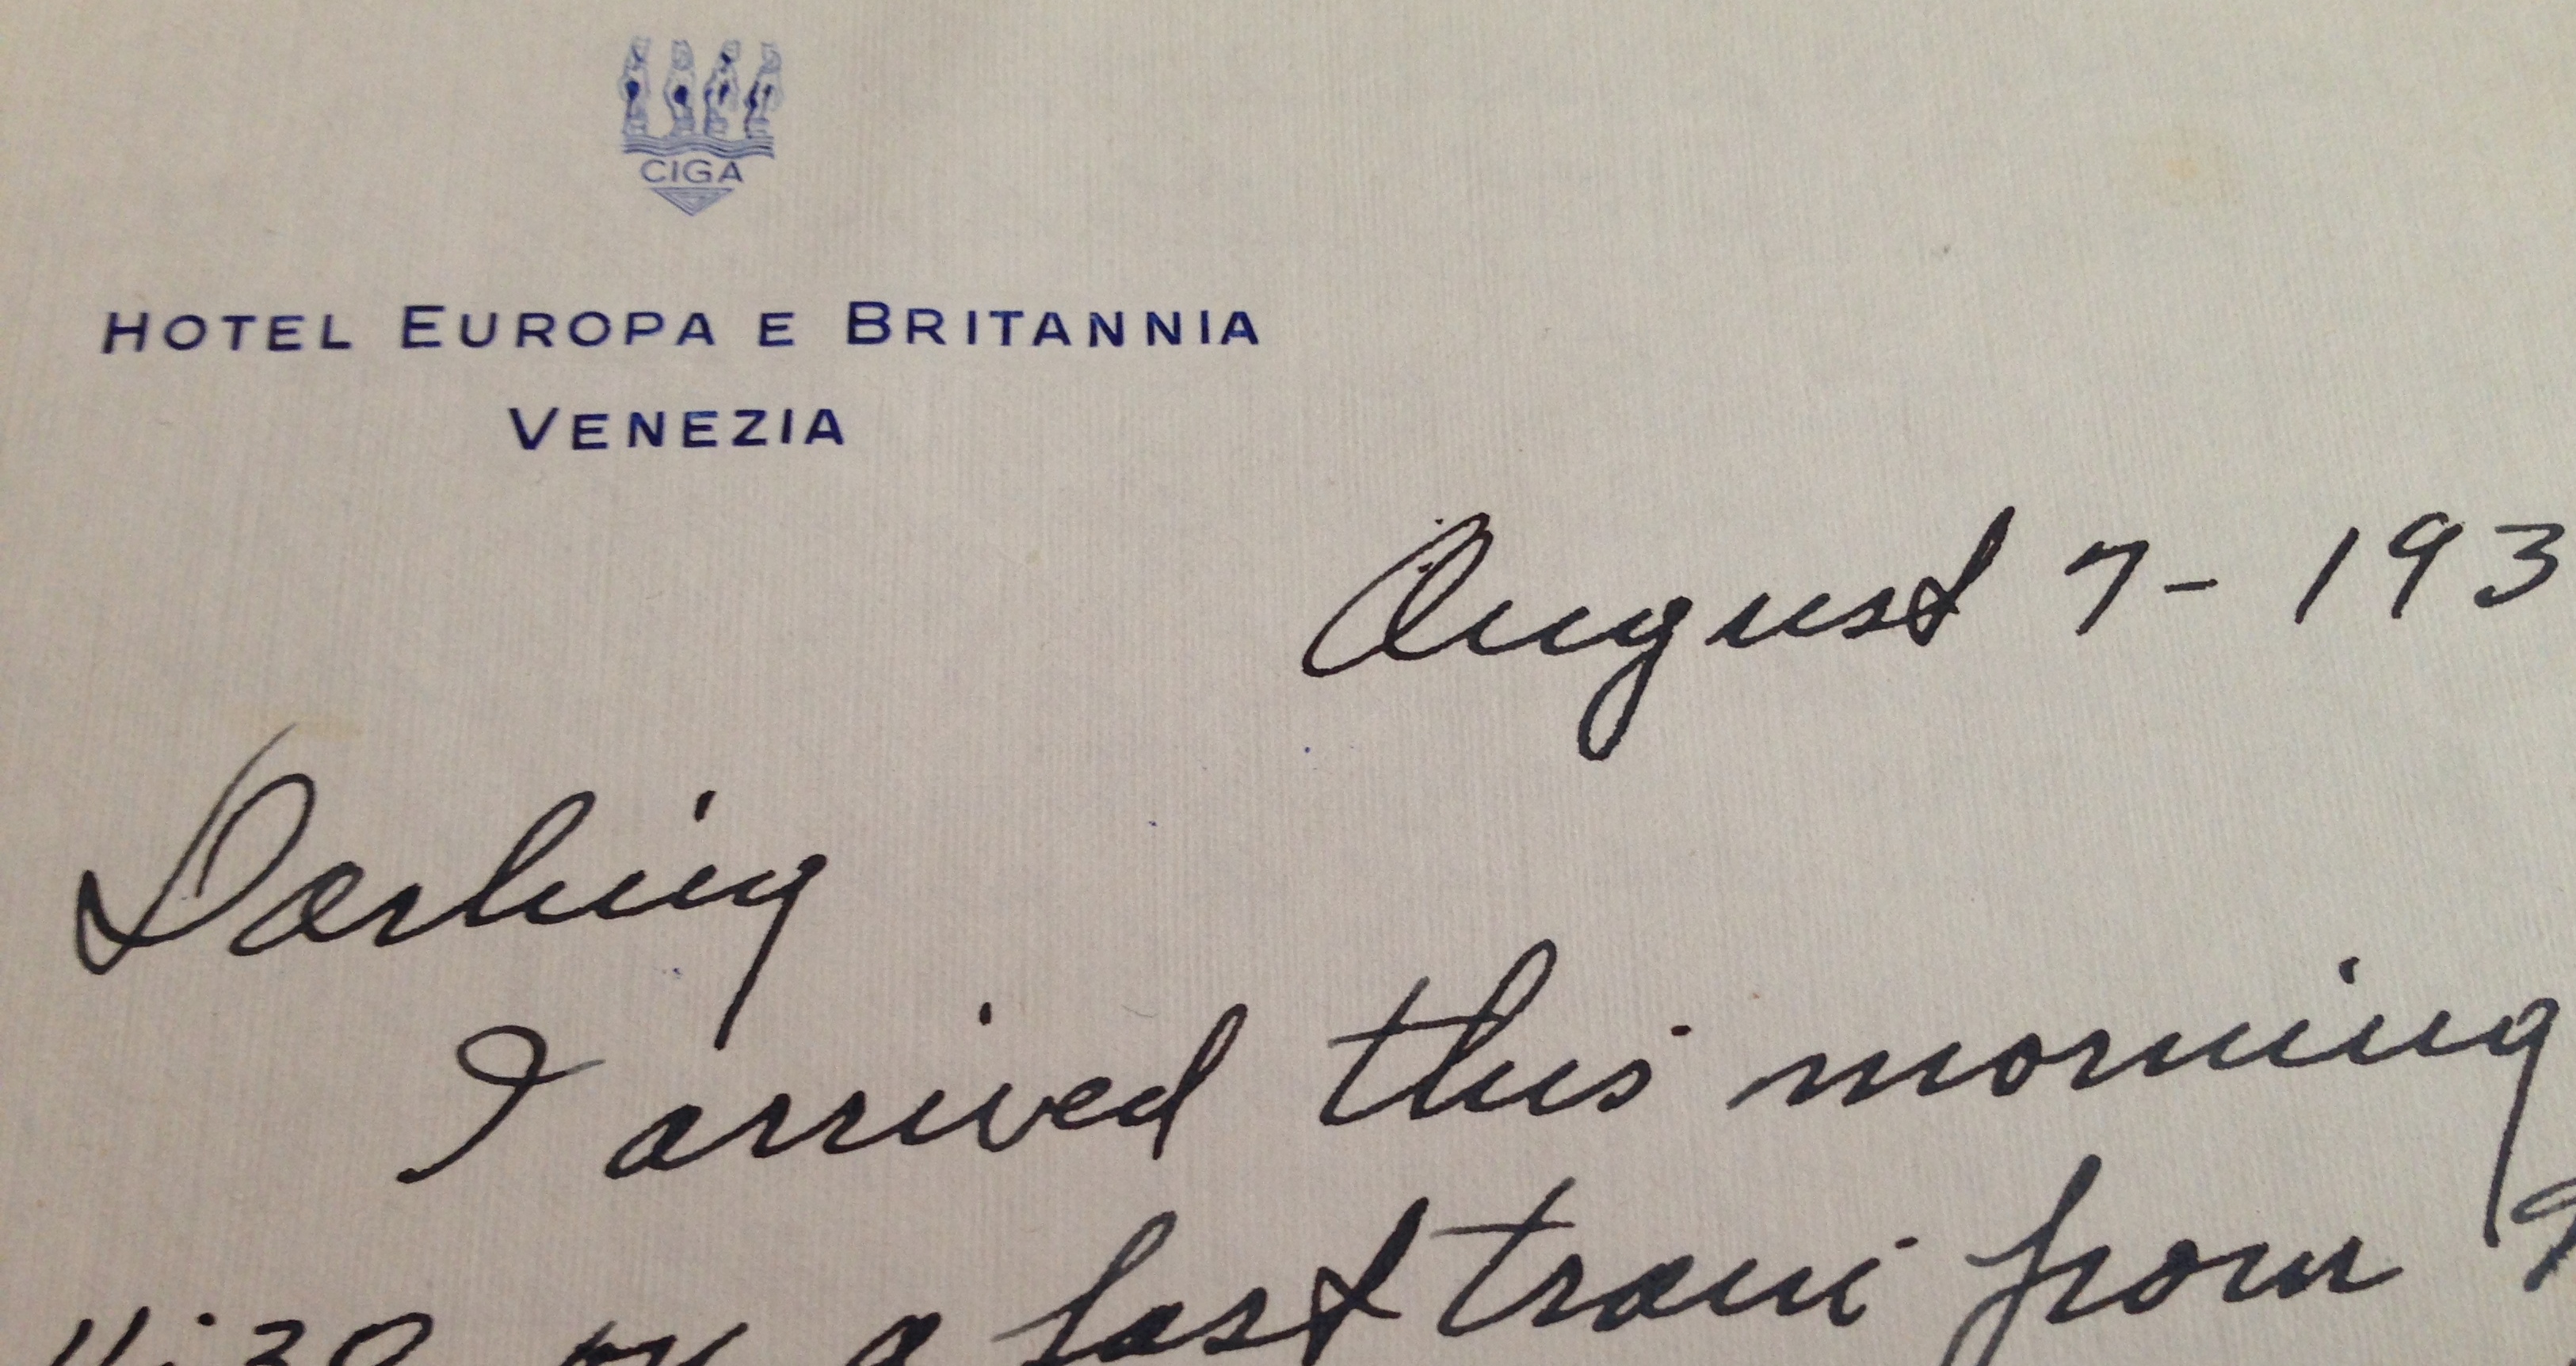 CIGA
HOTEL EUROPA E BRITANNIA
VENEZIA
August 7- 193
Darling
I arrived this morning
11:30 on a fast train from